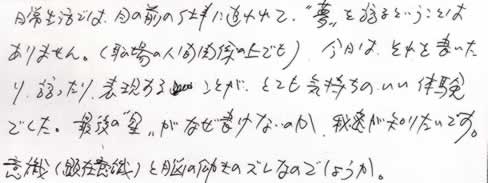 日常生活では、目の前の仕事に追われて、"夢"を語るということは
ありません。(職場の人間関係の上でも) 今日は、それを書いた
り、語ったり、表現することが、とても気持ちのいい体験
でした。最後の"星"がなぜ書けないのか、秘密が知りたいです。
意識(顕在意識)と脳の働きのズレなのでしょうか。